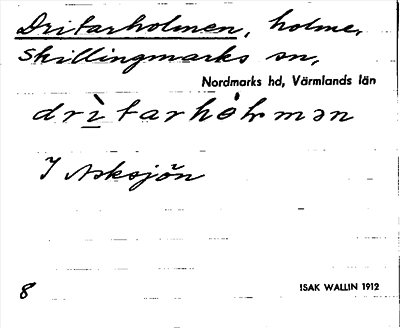 Dritarholmen, holme,
Skillingmarks sn,
Nordmarks hd, Värmlands län
drìtarhòlmən
I Asksjön
8
ISAK WALLIN 1912